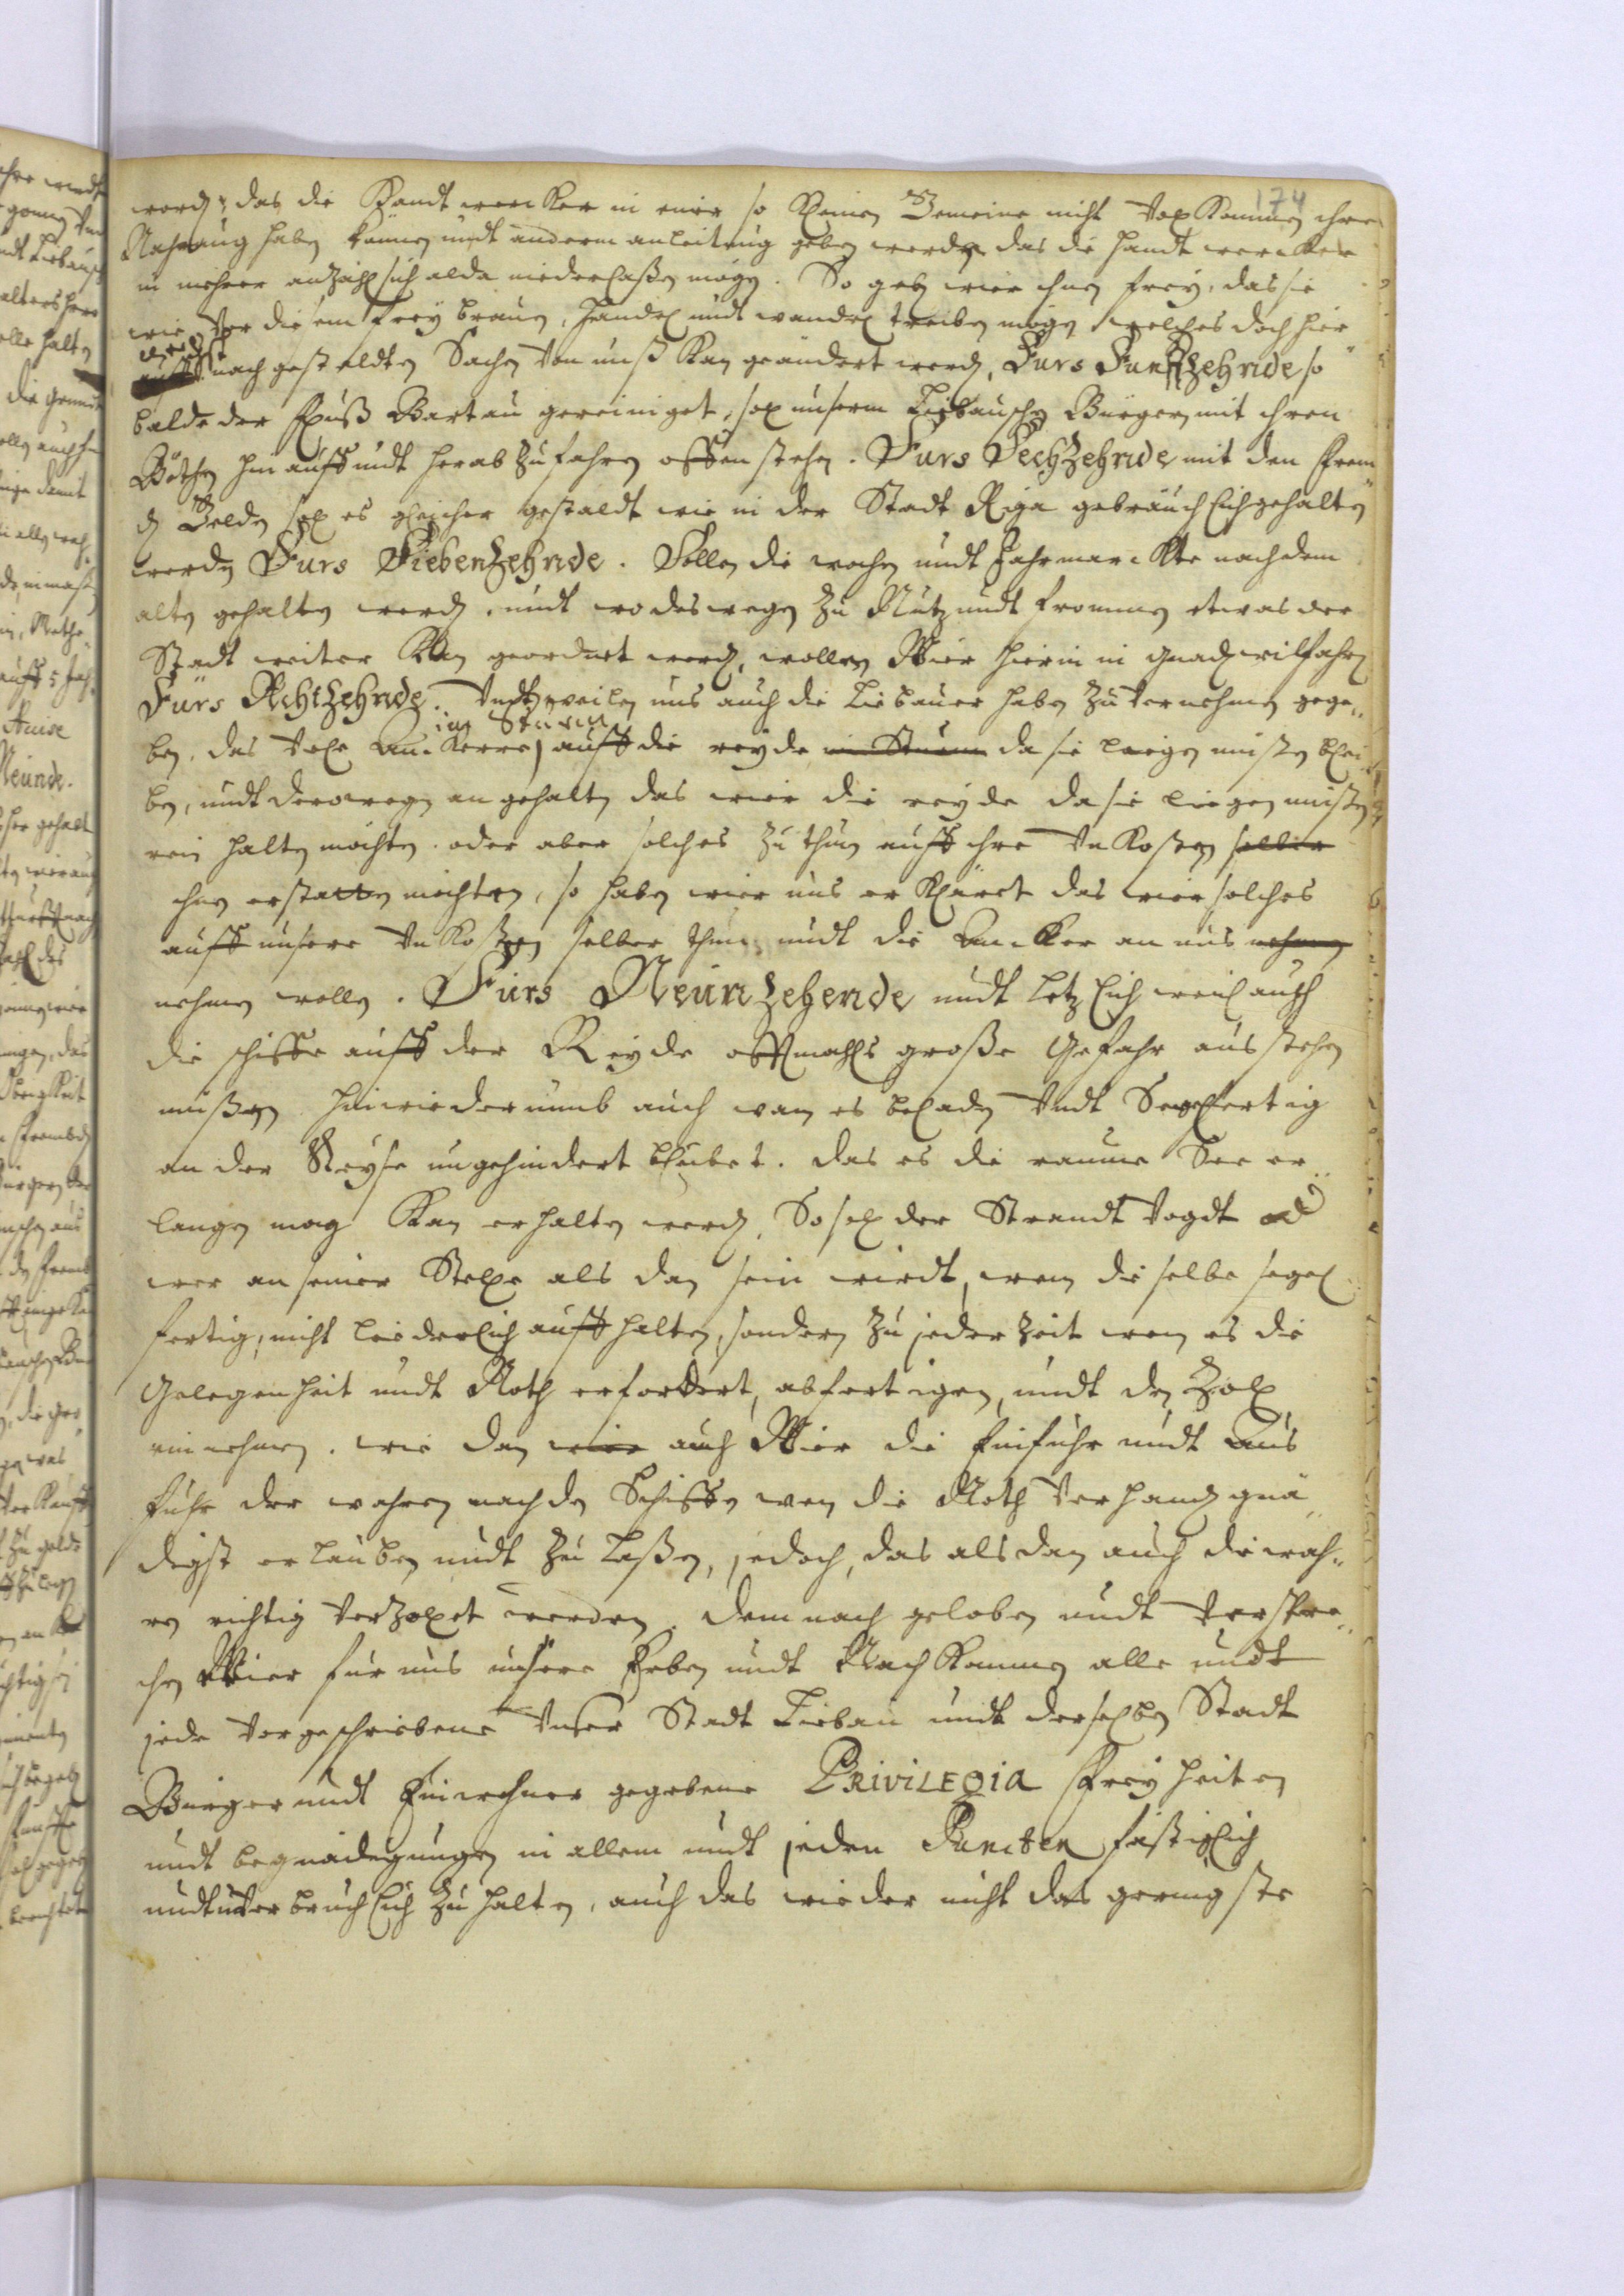 174
werdn, das die Handt wercker in einer so kleinen Gemeine nicht vollkommen ihre
Nahrung haben können undt anderm anleitung geben werden das die handt wercker
in mehrer anzahl sich alda niederlaßen mögen. So geben wier ihnen frey, das sie
wie vor diesem frey brauen, handel undt wandel treiben mögen welches doch hier
nach gestaldten Sachen von unß kan geandert werdn. Furs Funffzehnde so
balde der Fluß Bartau gereiniget, sol unserm Liebauschen Bürgern mit ihren
Böthen hin auff undt herab zu fahren offen stehen. Furs Sechzehnde mit den frem¬
dn Gelde sol es gleicher gestaldt wie in der Stadt Riga gebräuchlich gehalten
werden Furs Siebenzehnde. Sollen die wochen undt Jahrmarckte nach dem
alten gehalten werdn, undt wo deswegen zu Nutz undt frommen etwas der
Stadt weiter kan geordnet werdn, wollen Wier hierin in gnaden wilfahren
Fürs Achtzehnde. Undt weilen uns auch die Liebauer haben zu vernehmen gege¬
im Sturm
ben, das viele Anckerre auff die reyde im Sturm da sie liegen mußen blei¬
ben, undt derowegen angehalten das wier die reyde da sie liegen mußen
rein halten möchten. oder aber solches zu thun auff ihre Unkosten selber
ihnen erstatten möchten, so haben wier uns erkläret das wier solches
auff unsere Unkosten selber thun undt die Ancker an uns nehmen
nehmen wollen. Fürs Neunzehende undt letzlich weil auch
die schiffe auff der Reyde offtmahls große Gefahr aus stehen
mußen hinwiederumb auch wan es beladen Undt Segelfertig
an der Reyse ungehindert bleibet. das es die raume See er¬
langen mag kan erhalten werdn, So sol der Strandt Vogdt od
wer an seiner Stelle als dan sein wirdt, wan die selbe segel
fertig, nicht liederlich auff halten, sondern zu jeder Zeit wen es die
Gelegenheit undt Noth erfordert, abfertigen, undt den Zol
ein nehmen. wie dan wier auch Wier die Einfuhr undt Aus
fuhr der wahren nach den Schiffen wen die Noth verhandn gnä¬
digst erlauben undt zu laßen, jedoch, das alsdan auch die wah¬
ren richtig verzollet werden. dem nach geloben undt verspre¬
chen Wier fur uns unsere Erben undt Nachkommen alle undt
jede vorgeschriebene Unser Stadt Liebau undt derselben Stadt
Bürger undt Einwohner gegebene Privilegia Freyheiten
undt begnadigungen in allem undt jeden Puncten fästiglich
undt unverbruchlich zu halten, auch das wieder nicht das geringste